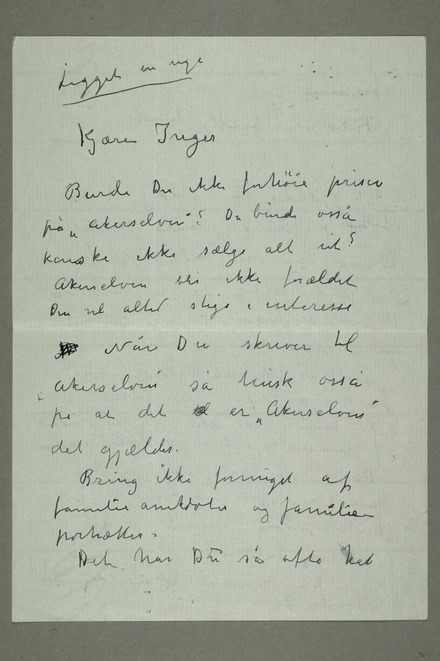 Ligget en uge
Kjære Inger
Burde Du ikke forhöie prisen
på "Akerselven"? Du burde også
kanske ikke sælge alt ut?
Akerselven blir ikke forældet
Den vil altid stige i interesse
Når Du skriver til
Akerselven så husk også
på at det er "Akerselven"
det gjælder.
Bring ikke formeget af
familieanekdoter og familien
portrætter.
Det har Du så ofte